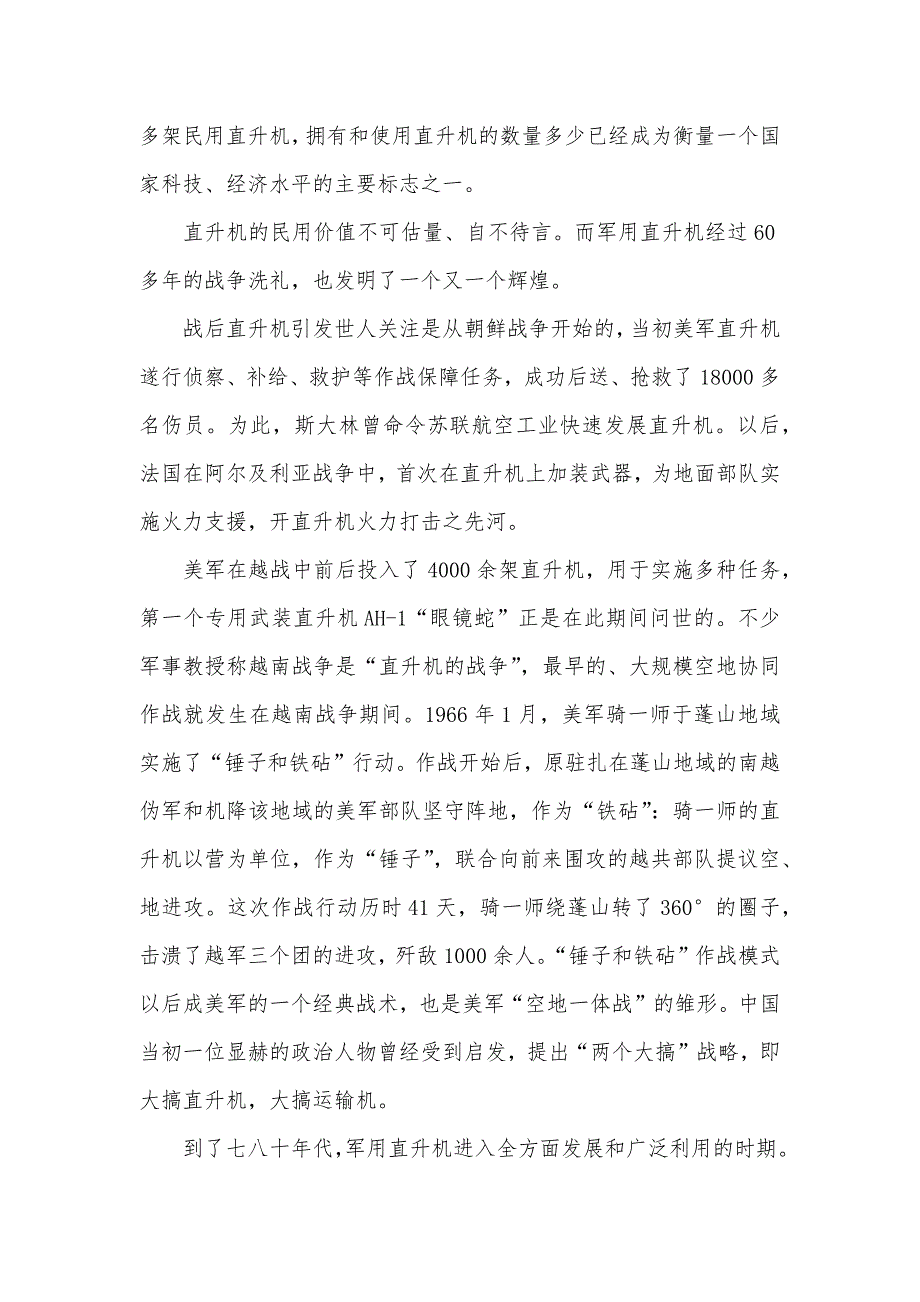 多架民用直升机,拥有和使用直升机的数量多少已经成为衡量一个国
家科技、经济水平的主要标志之一。
直升机的民用价值不可估量、自不待言。而军用直升机经过 60
多年的战争洗礼，也发明了一个又一个辉煌。
战后直升机引发世人关注是从朝鲜战争开始的,当初美军直升机
遂行侦察、补给、救护等作战保障任务，成功后送、抢救了 18000 多
名伤员。为此，斯大林曾命令苏联航空工业快速发展直升机。以后，
法国在阿尔及利亚战争中，首次在直升机上加装武器，为地面部队实
施火力支援，开直升机火力打击之先河。
美军在越战中前后投入了 4000 余架直升机，用于实施多种任务，
第一个专用武装直升机 AH-1“眼镜蛇”正是在此期间问世的。不少
军事教授称越南战争是“直升机的战争”，最早的、大规模空地协同
作战就发生在越南战争期间。1966 年 1 月，美军骑一师于蓬山地域
实施了“锤子和铁砧”行动。作战开始后，原驻扎在蓬山地域的南越
伪军和机降该地域的美军部队坚守阵地，作为“铁砧”：骑一师的直
升机以营为单位，作为“锤子”，联合向前来围攻的越共部队提议空、
地进攻。这次作战行动历时 41 天，骑一师绕蓬山转了 360°的圈子，
击溃了越军三个团的进攻，歼敌 1000 余人。“锤子和铁砧”作战模式
以后成美军的一个经典战术，也是美军“空地一体战”的雏形。中国
当初一位显赫的政治人物曾经受到启发，提出“两个大搞”战略，即
大搞直升机，大搞运输机。
到了七八十年代,军用直升机进入全方面发展和广泛利用的时期。